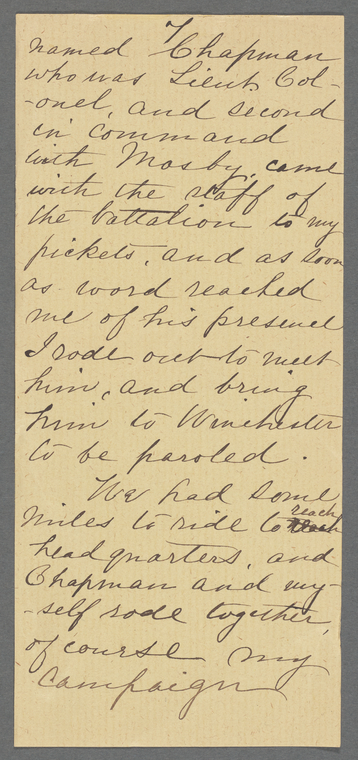 7
named Chapman
who was Lieut. Col-
-onel, and second
in command
with Mosby, came
with the staff of
the battalion to my
pickets, and as soon
as word reached
me of his presence
I rode out to meet
him, and bring
him to Winchester
to be paroled.
We had some
reach
miles to ride to
headquarters, and
Chapman and my-
-self rode together,
of course my
campaign